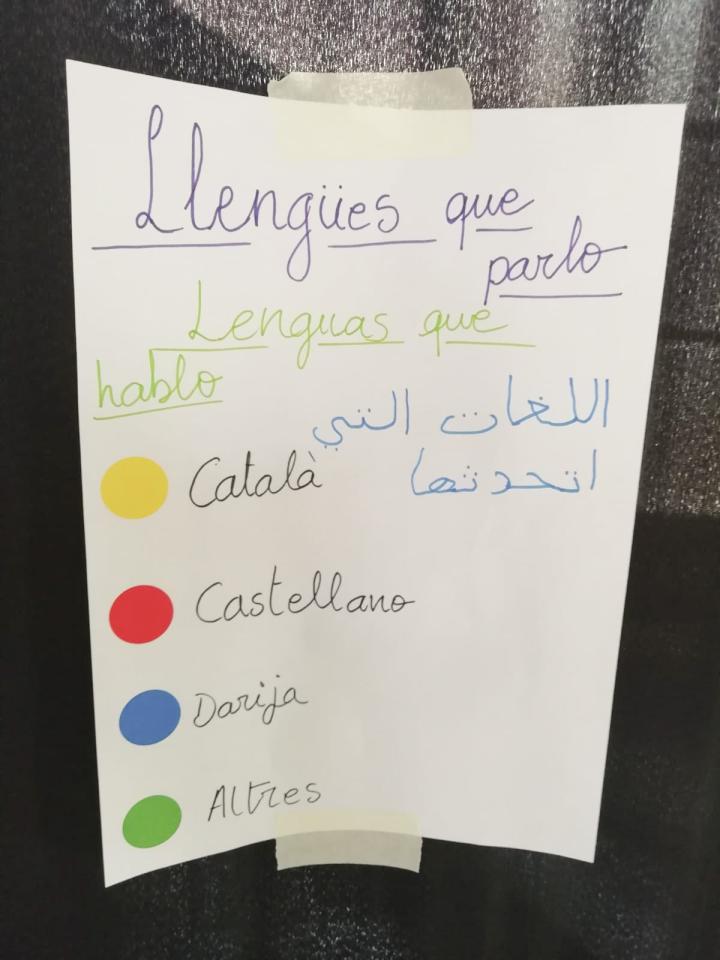 Llengües que
parlo
Lenguas que
hablo
اللغات التي
اتحدثها
Català
Castellano
Darija
Altres